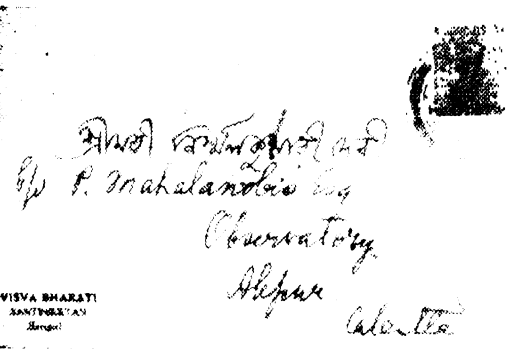 শ্রীমতী নির্মলকুমারী দেবী
C/o P. Mahalanobis Esq
Observatory
Alipur
Calcutta
VISVA BHARATI
SANTINIKETAN
Bengal